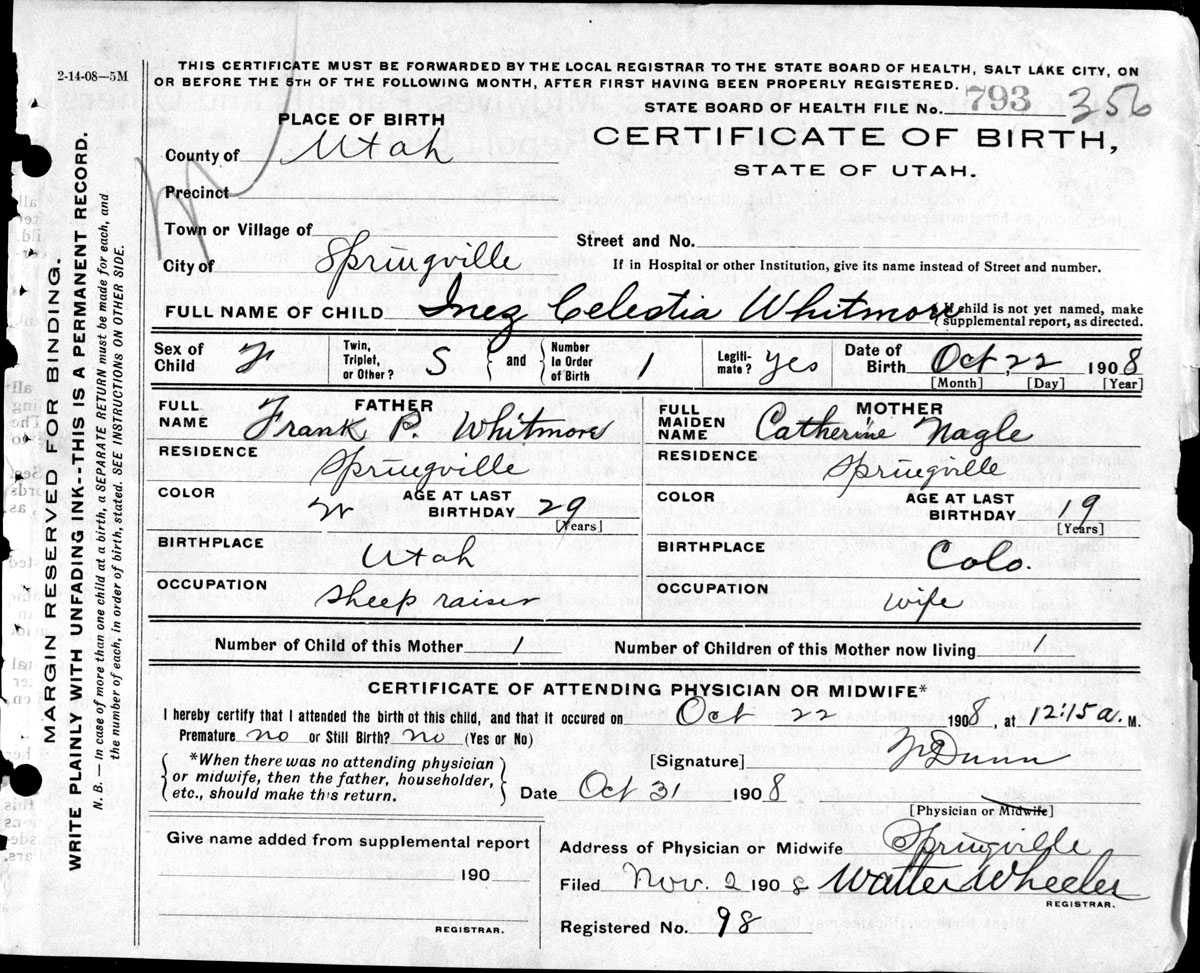 2-14-08—5M
THIS CERTIFICATE MUST BE FORWARDED BY THE LOCAL REGISTRAR TO THE STATE BOARD OF HEALTH, SALT LAKE CITY, ON
OR BEFORE THE 5TH OF THE FOLLOWING MONTH, AFTER FIRST HAVING BEEN PROPERLY REGISTERED.
STATE BOARD OF HEALTH FILE No. 793 356
PLACE OF BIRTH
CERTIFICATE OF BIRTH,
STATE OF UTAH.
County of Utah
Precinct
Town or Village of
Street and No.
City of Springville
If in Hospital or other Institution, give its name instead of Street and number.
FULL NAME OF CHILD Inez Celestia Whitmore { If child is not yet named, make supplemental report, as directed.
Sex of Child F Twin, Triplet, or Other? S { and } Number In Order of Birth 1 Legiti-mate? yes Date of Birth Oct, 22 1908
[Month] [Day] [Year]
FATHER
FULL NAME Frank P. Whitmore
RESIDENCE Springville
COLOR W AGE AT LAST BIRTHDAY 29
[Years]
BIRTHPLACE Utah
OCCUPATION sheep raiser
MOTHER
FULL MAIDEN NAME Catherine Nagle
RESIDENCE Springville
COLOR AGE AT LAST BIRTHDAY 19
[Years]
BIRTHPLACE Colo.
OCCUPATION wife
Number of Child of this Mother 1 Number of Children of this Mother now living 1
CERTIFICATE OF ATTENDING PHYSICIAN OR MIDWIFE*
I hereby certify that I attended the birth of this child, and that it occured on Oct 22 1908, at 12:15 a. M.
Premature no or Still Birth? no (Yes or No)
*When there was no attending physician
or midwife, then the father, householder,
etc., should make this return.
[Signature] Dunn
Date Oct 31 1908
[Physician or Midwife]
Give name added from supplemental report
190
REGISTRAR.
Address of Physician or Midwife Springville
Filed Nov. 2 1908 Walter Wheeler
REGISTRAR.
Registered No. 98
MARGIN RESERVED FOR BINDING.
WRITE PLAINLY WITH UNFADING INK--THIS IS A PERMANENT RECORD.
N. B. — In case of more than one child at a birth, a SEPARATE RETURN must be made for each, and
the number of each, in order of birth, stated. SEE INSTRUCTIONS ON OTHER SIDE.